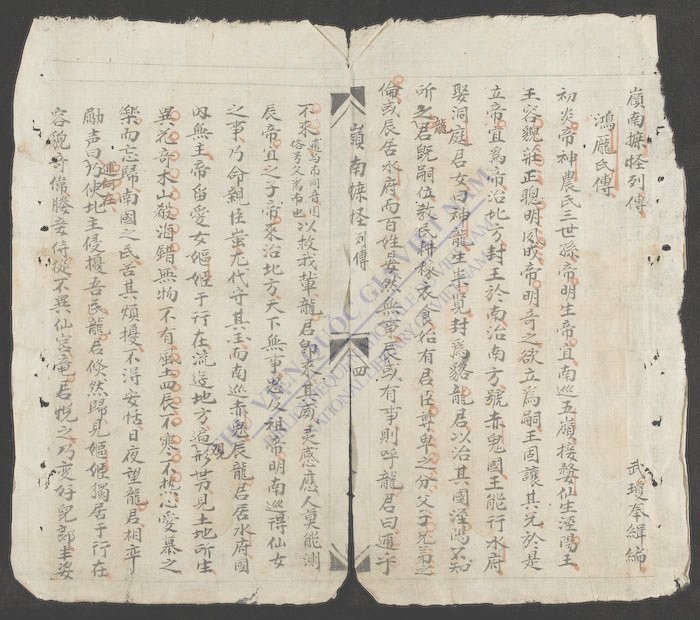 嶺南摭怪列傳
武瓊奉緝編
鴻厖氏傳
初炎帝神農氏三世孫帝明生帝宜南巡五嶺接婺仙生涇陽王
王容貌莊正聰明夙成帝明竒之欲立為嗣王固讓其兄於是
立帝宜為帝治北方封王於南治南方號赤鬼國王能行水府
娶洞庭君女曰神龍生崇覽封為貉龍君以治其國涇陽不知
所之龍君既嗣位教民耕稼衣食始有君臣尊卑之分父子兄弟之
倫或辰居水府而百姓晏然無事辰或有事則呼龍君曰逋乎
嶺南摭怪列傳
四
不來逋烏市同音用俗号父為市也以救我輩龍君即來其威灵感應人莫能測
辰帝宜之子帝來治北方天下無事思及祖帝明南巡得仙女
之事乃命親臣蚩尤代守其國而南巡赤鬼辰龍君居水府國
內無王帝留愛女嫗姬于行在流遊地方遍形势見土地所生
異花奇木山殽海錯無物不有風土四辰不寒不熱心愛慕之
樂而忘歸南國之民苦其煩擾不淂安恬日夜望龍君相率
勵声曰逋何在乃使北主侵擾吾民龍君倐然歸見嫗姬獨居于行在
容貌奇偉勝妾侍從不異仙宮竜君悅之乃变好兒郎丰姿
THƯ VIỆN QUỐC GIA VIỆT NAM
BIBLIOTHEQUE NATIONALE DU VIETNAM
NATIONAL LIBRARY OF VIETNAM